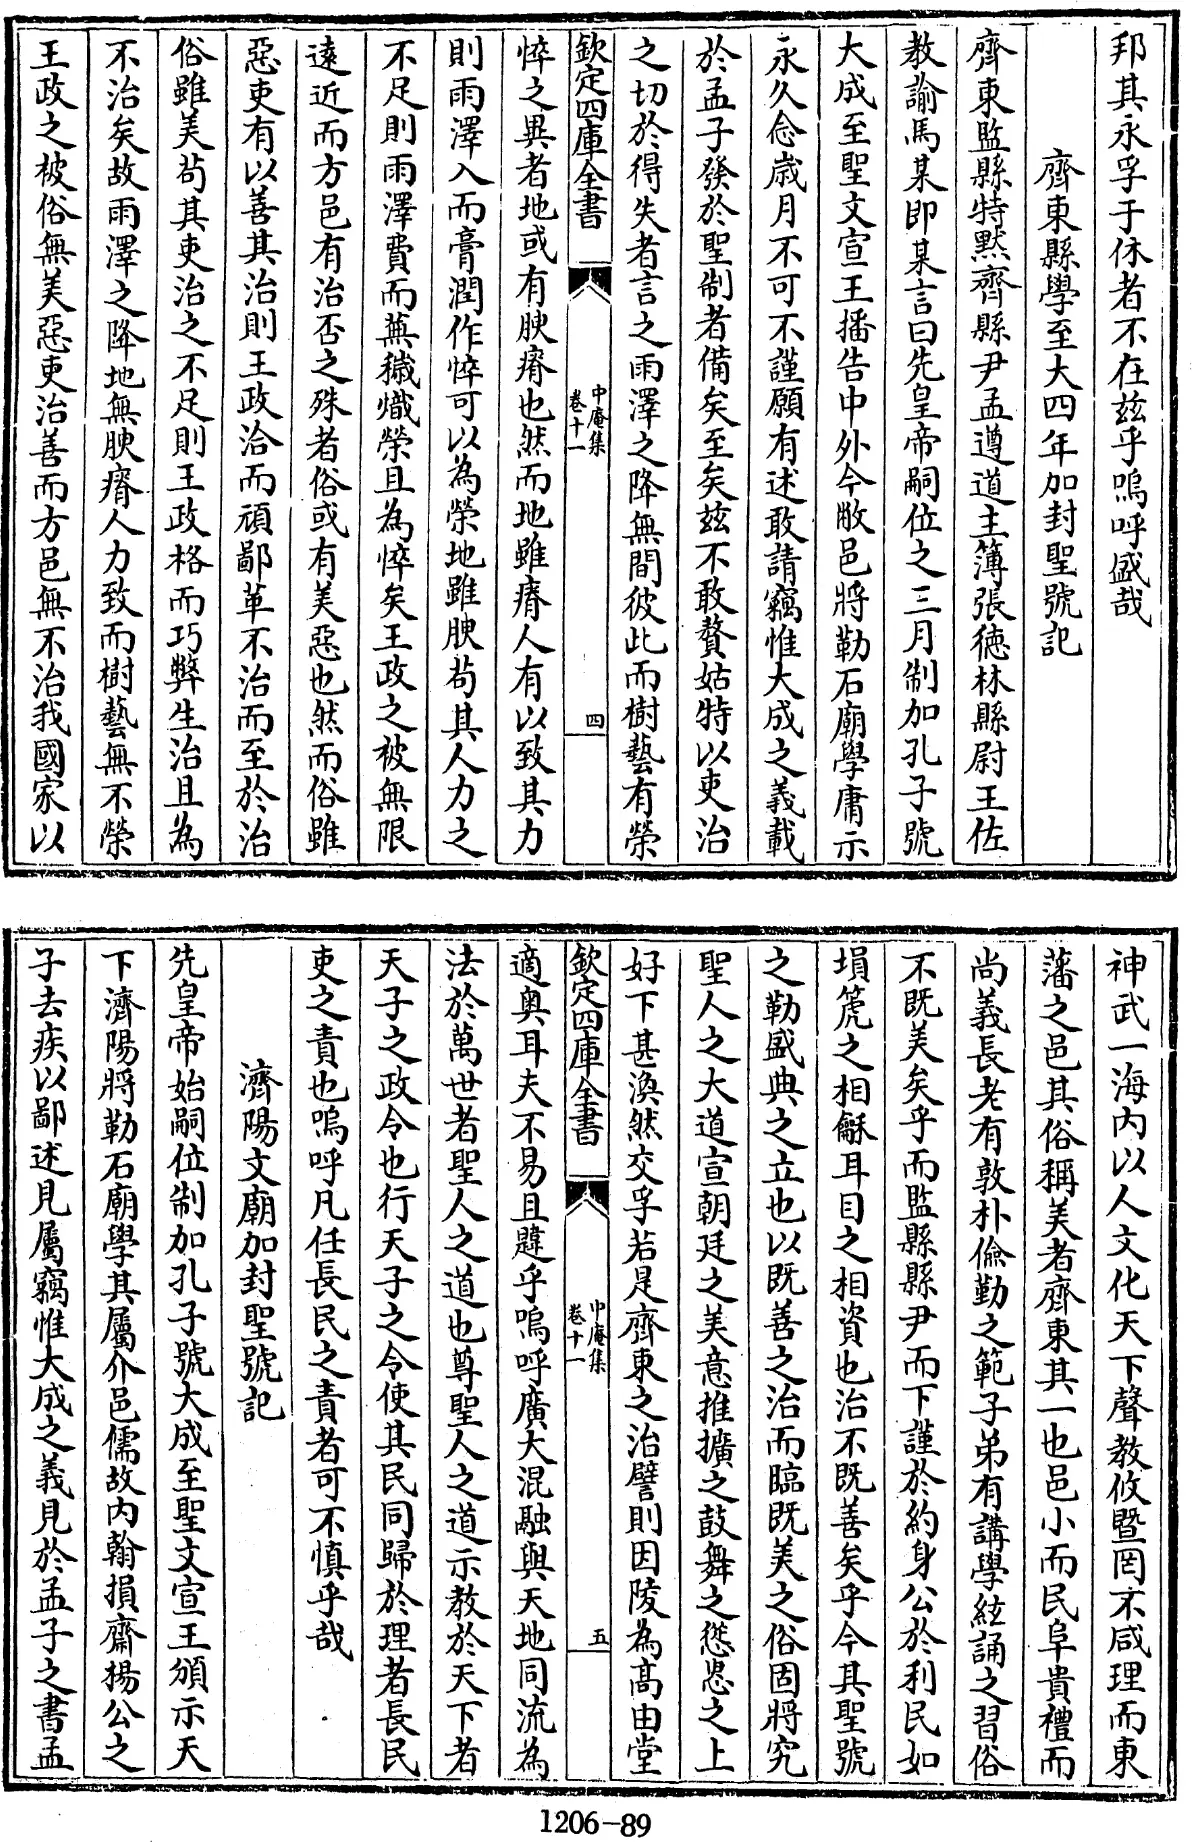 邦其永孚于休者不在兹乎嗚呼盛哉
齊東縣學至大四年加封聖號記
齊東監縣特黙齊縣尹孟遵道主簿張德林縣尉王佐
教諭馬某即某言曰先皇帝嗣位之三月制加孔子號
大成至聖文宣王播告中外今敝邑將勒石廟學庸示
永久念歳月不可不謹願有述敢請竊惟大成之義載
於孟子發於聖制者備矣至矣兹不敢贅姑特以吏治
之切於得失者言之雨澤之降無間彼此而樹藝有榮
欽定四庫全書
中庵集
卷十一
四
悴之異者地或有腴瘠也然而地雖瘠人有以致其力
則雨澤入而膏潤作悴可以為榮地雖腴茍其人力之
不足則雨澤費而蕪穢熾榮且為悴矣王政之被無限
逺近而方邑有治否之殊者俗或有美惡也然而俗雖
惡吏有以善其治則王政洽而頑鄙革不治而至於治
俗雖美茍其吏治之不足則王政格而巧弊生治且為
不治矣故雨澤之降地無腴瘠人力致而樹藝無不榮
王政之被俗無美惡吏治善而方邑無不治我國家以
神武一海内以人文化天下聲教攸暨罔不咸理而東
藩之邑其俗稱美者齊東其一也邑小而民阜貴禮而
尚義長老有敦朴儉勤之範子弟有講學絃誦之習俗
不既美矣乎而監縣縣尹而下謹於約身公於利民如
塤箎之相龢耳目之相資也治不既善矣乎今其聖號
之勒盛典之立也以既善之治而臨既美之俗固將究
聖人之大道宣朝廷之美意推擴之鼓舞之慫恿之上
好下甚渙然交孚若是齊東之治譬則因陵為髙由堂
欽定四庫全書
中庵集
卷十一
五
適奥耳夫不易且韙乎嗚呼廣大混融與天地同流為
法於萬世者聖人之道也尊聖人之道示教於天下者
天子之政令也行天子之令使其民同歸於理者長民
吏之責也嗚呼凡任長民之責者可不慎乎哉
濟陽文廟加封聖號記
先皇帝始嗣位制加孔子號大成至聖文宣王頒示天
下濟陽將勒石廟學其屬介邑儒故内翰損齋楊公之
子去疾以鄙述見屬竊惟大成之義見於孟子之書孟
1206-89